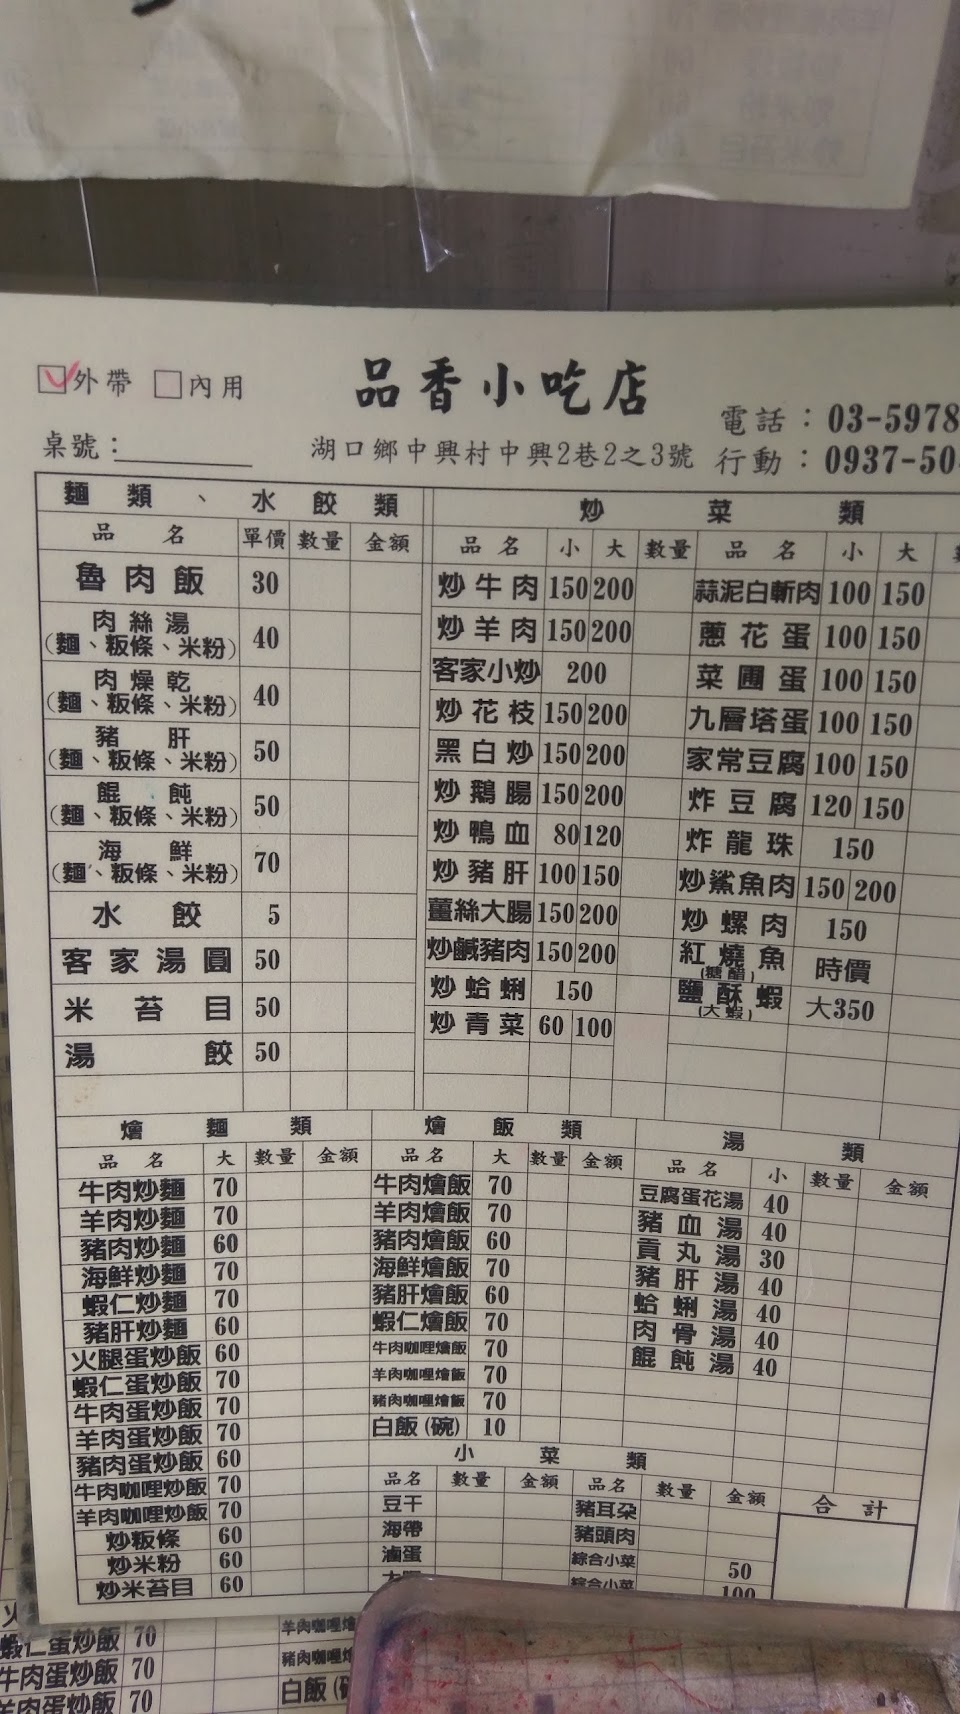 品香小吃店
外帶 內用
桌號：
湖口鄉中興村中興2巷2之3號
電話：03-5978
行動：0937-50
麵類、水餃類
品名 單價 數量 金額
魯肉飯 30
肉絲湯 40
(麵、粄條、米粉)
肉燥乾 40
(麵、粄條、米粉)
豬肝 50
(麵、粄條、米粉)
餛飩 50
(麵、粄條、米粉)
海鮮 70
(麵、粄條、米粉)
水餃 5
客家湯圓 50
米苔目 50
湯餃 50
炒菜類
品名 小 大 數量 品名 小 大
炒牛肉 150 200
炒羊肉 150 200
客家小炒 200
炒花枝 150 200
黑白炒 150 200
炒鵝腸 150 200
炒鴨血 80 120
炒豬肝 100 150
薑絲大腸 150 200
炒鹹豬肉 150 200
炒蛤蜊 150
炒青菜 60 100
蒜泥白斬肉 100 150
蔥花蛋 100 150
菜圃蛋 100 150
九層塔蛋 100 150
家常豆腐 100 150
炸豆腐 120 150
炸龍珠 150
炒鯊魚肉 150 200
炒螺肉 150
紅燒魚 時價
(糖醋)
鹽酥蝦 大350
(大蝦)
燴麵類
品名 大 數量 金額
牛肉炒麵 70
羊肉炒麵 70
豬肉炒麵 60
海鮮炒麵 70
蝦仁炒麵 70
豬肝炒麵 60
火腿蛋炒飯 60
蝦仁蛋炒飯 70
牛肉蛋炒飯 70
羊肉蛋炒飯 70
豬肉蛋炒飯 60
牛肉咖哩炒飯 70
羊肉咖哩炒飯 70
炒粄條 60
炒米粉 60
炒米苔目 60
燴飯類
品名 大 數量 金額
牛肉燴飯 70
羊肉燴飯 70
豬肉燴飯 60
海鮮燴飯 70
豬肝燴飯 60
蝦仁燴飯 70
牛肉咖哩燴飯 70
羊肉咖哩燴飯 70
豬肉咖哩燴飯 70
白飯(碗) 10
湯類
品名 小 數量 金額
豆腐蛋花湯 40
豬血湯 40
貢丸湯 30
豬肝湯 40
蛤蜊湯 40
肉骨湯 40
餛飩湯 40
小菜類
品名 數量 金額 品名 數量 金額
豆干 豬耳朵
海帶 豬頭肉
滷蛋 綜合小菜 50
綜合小菜 100
合計
蝦仁蛋炒飯 70
牛肉蛋炒飯 70
羊肉蛋炒飯 70
羊肉咖哩
豬肉咖哩
白飯